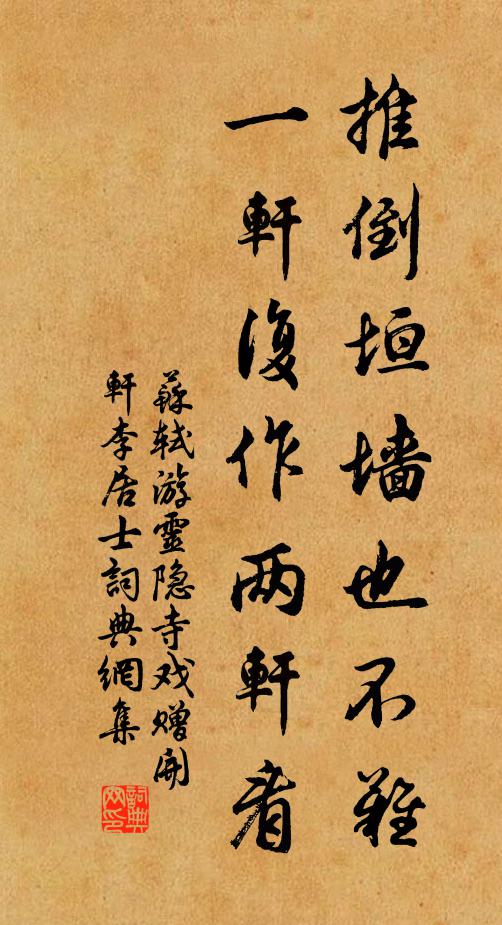 推倒垣墙也不難
一軒復作两軒看
蘇轼游靈隐寺戏赠開
軒李居士詞典網集
詞典网印